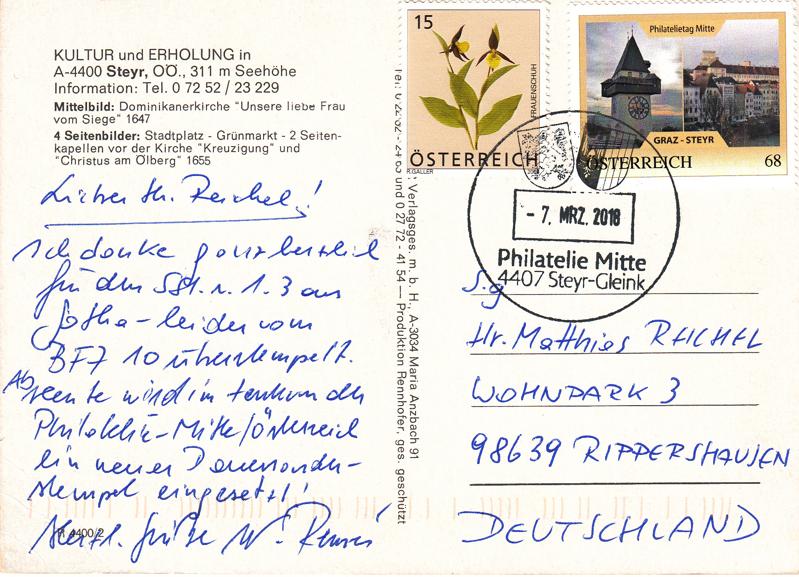 KULTUR und ERHOLUNG in
A-4400 Steyr, OÖ., 311 m Seehöhe
Information: Tel. 0 72 52 / 23 229
Mittelbild: Dominikanerkirche "Unsere liebe Frau
vom Siege" 1647
4 Seitenbilder: Stadtplatz - Grünmarkt - 2 Seiten-
kapellen vor der Kirche "Kreuzigung" und
"Christus am Ölberg" 1655
Lieber Hr. Reichel!
Ich danke ganz herzlich
für den SSt. v. 1.3 aus
Gotha - leider vom
BFZ 10 überstempelt.
Ab heute wird im
Philatelie-Mitte/Österreich
ein neuer Dauersonder-
stempel eingesetzt!
Herzl. Grüße W.
R 4400/2
Verlagsges. m. b. H., A-3034 Maria Anzbach 91
und 0 27 72 - 41 54 — Produktion Rennhofer, ges. geschützt
15
FRAUENSCHUH
ÖSTERREICH
R.GALLER
Philatelietag Mitte
GRAZ - STEYR
ÖSTERREICH 68
- 7. MRZ. 2018
Philatelie Mitte
4407 Steyr-Gleink
S.g
Hr. Matthias REICHEL
WOHNPARK 3
98639 RIPPERSHAUSEN
DEUTSCHLAND